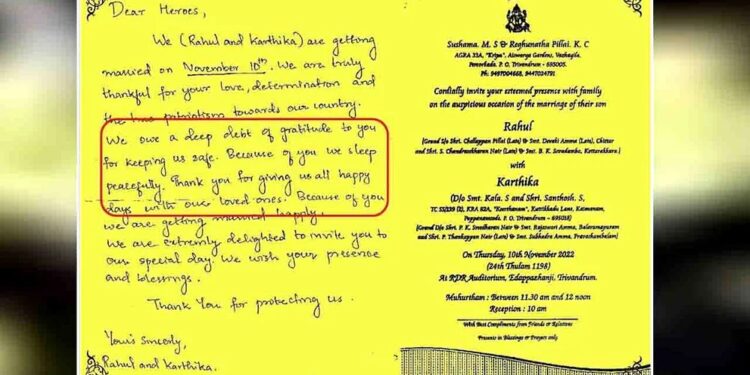 Dear Heroes,
We (Rahul and Karthika) are getting
married on November 10th. We are truly
thankful for your love, determination and
the true patriotism towards our country.
We owe a deep debt of gratitude to you
for keeping us safe. Because of you we sleep
peacefully. Thank you for giving us all happy
days with our loved ones. Because of you
we are getting married happily.
We are extremly delighted to invite you to
our special day. We wish your presence
and blessings.
Thank You for protecting us.
Yours sincerly,
Rahul and Karthika.
Sushama. M. S & Reghunatha Pillai. K. C
AGRA 33A, "Kripa", Aiswarya Gardens, Vazhayila,
Peroorkada. P. O, Trivandrum - 695005.
Ph: 9497004668, 9447024791
Cordially invite your esteemed presence with family
on the auspicious occasion of the marriage of their son
Rahul
(Grand S/o Shri. Chellappan Pillai (Late) & Smt. Devaki Amma (Late), Chittar
and Shri. S. Chandrasekharan Nair (Late) & Smt. B. K. Saradamba, Kottarakkara.)
with
Karthika
(D/o Smt. Kala. S and Shri. Santhosh. S,
P. O, Trivandrum - 695018)
(Grand D/o Shri. P. K. Sreedharan Nair & Smt. Rajeswari Amma, Balaramapuram
and Shri. P. Thankappan Nair (Late) & Smt. Subhadra Amma,
On Thursday, 10th November 2022
(24th Thulam 1198)
At RDR Auditorium, Edappazhanji, Trivandrum.
Muhurtham : Between 11.30 am and 12 noon
Reception : 10 am
With Best Compliments from Friends & Relatives
Presents in Blessings & Prayers only